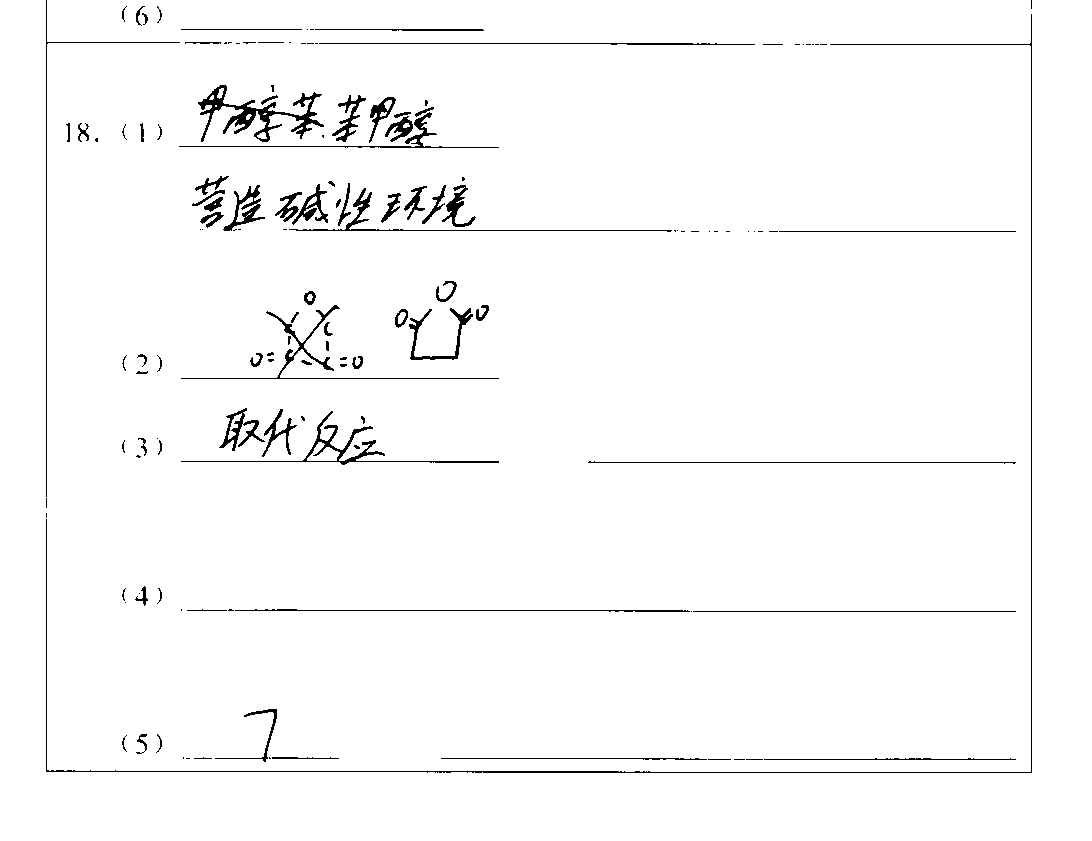 (6)
18. (1) 苯甲醇
营造碱性环境
(2) O O O
(3) 取代反应
(4)
(5) 7